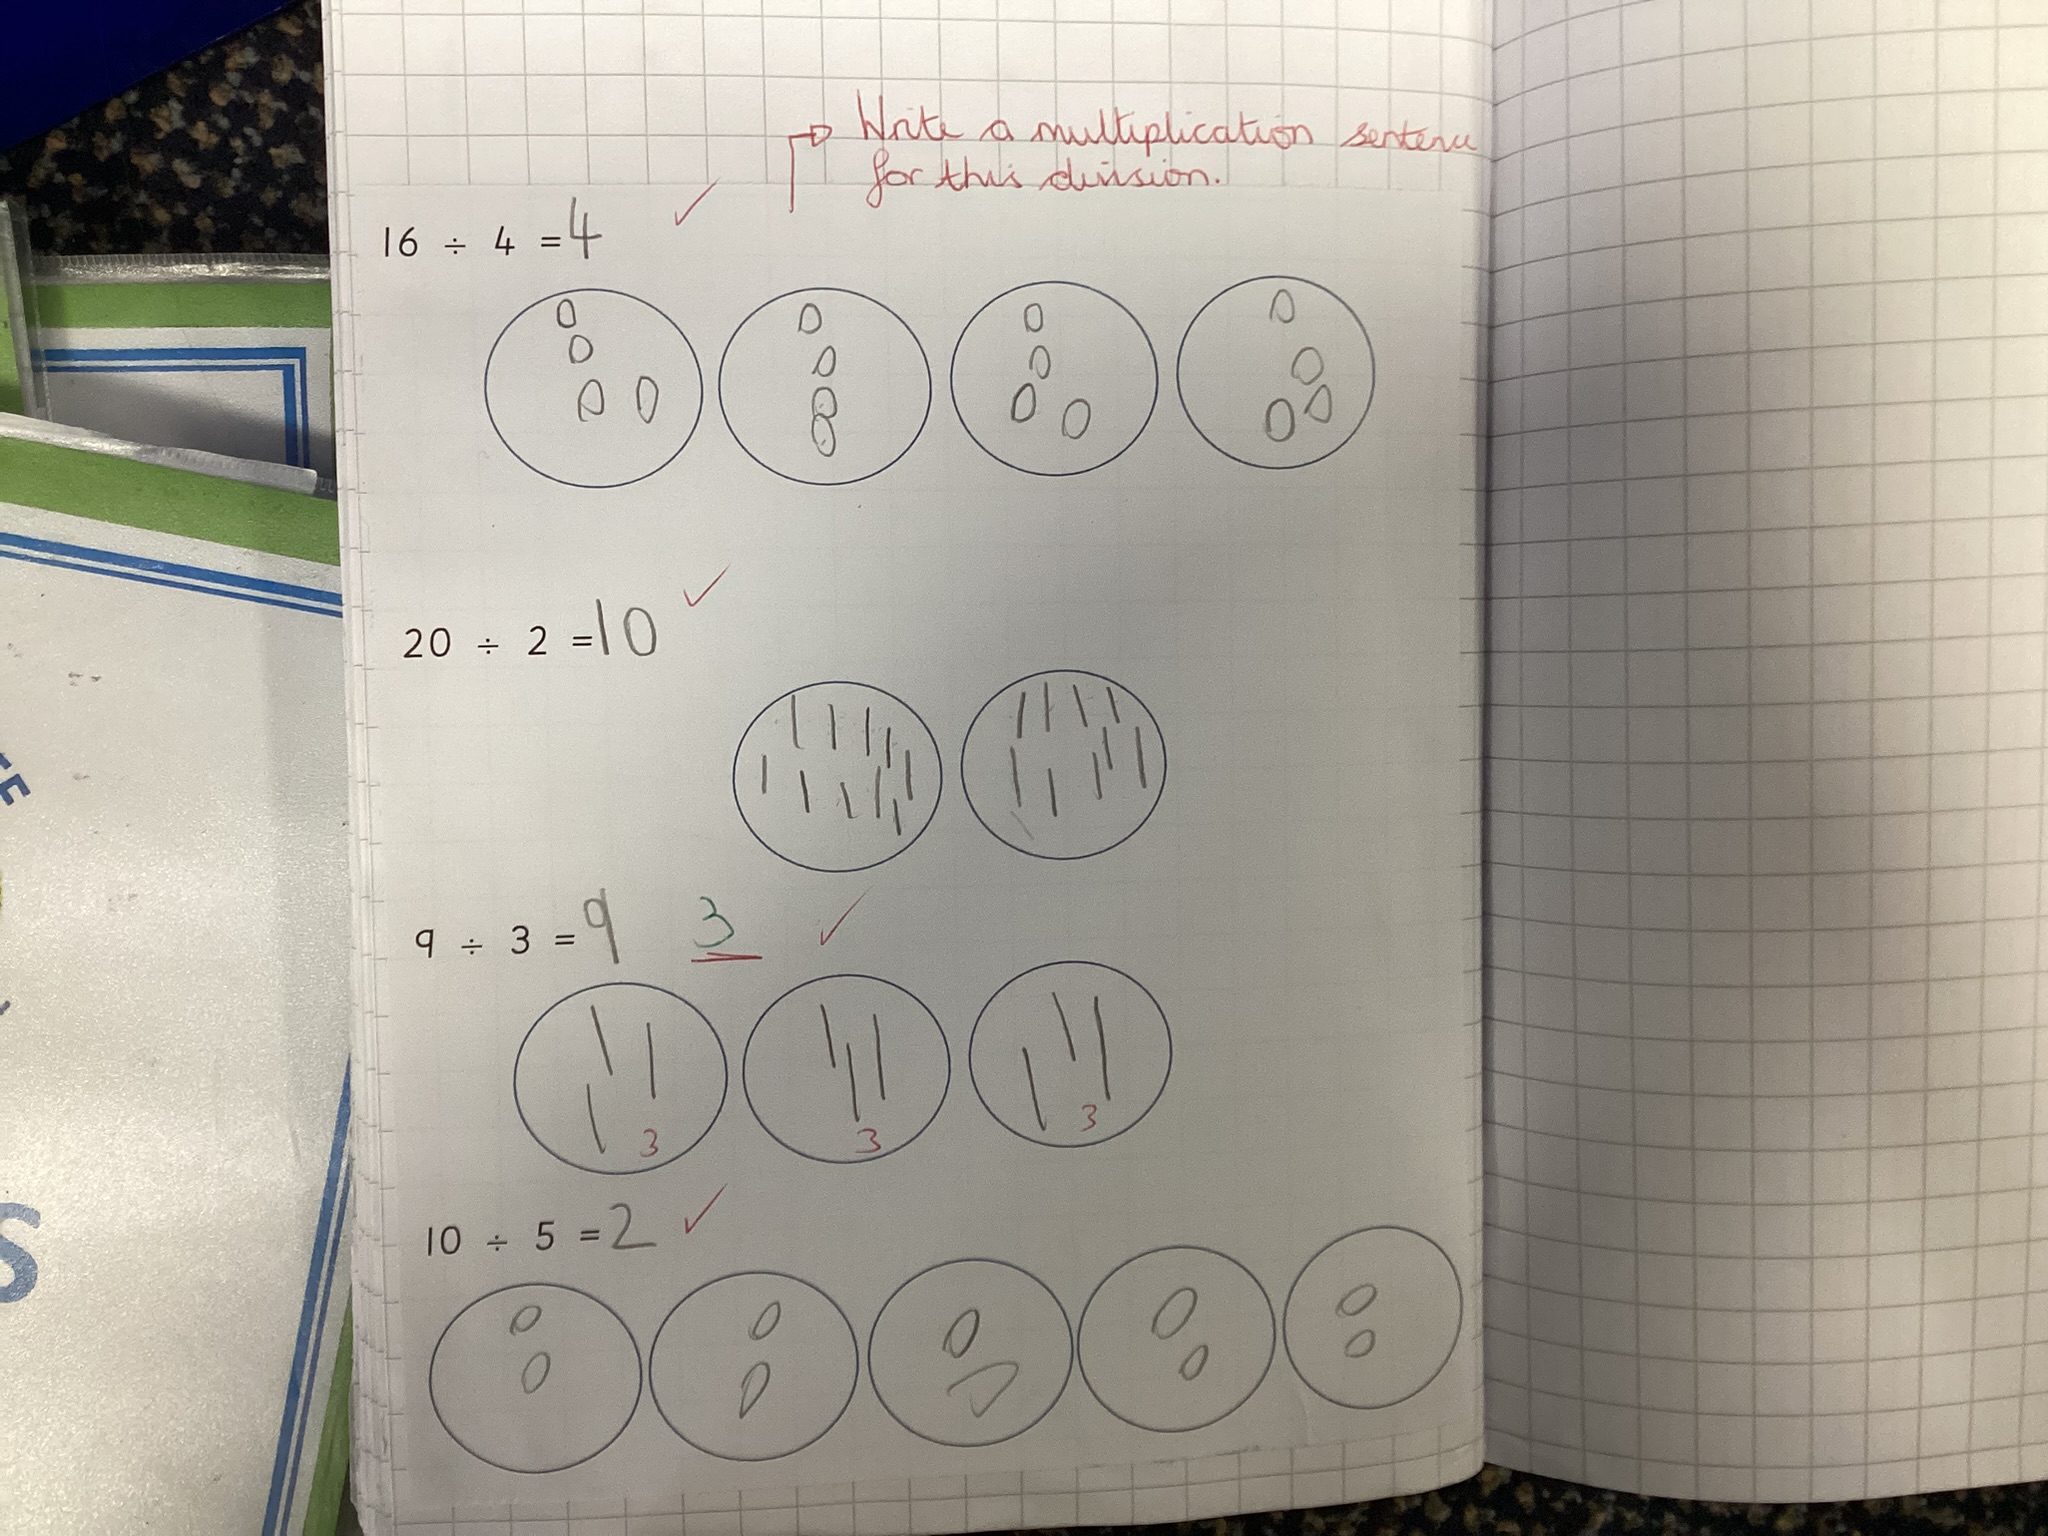 Write a multiplication sentence
for this division.
16 ÷ 4 = 4
20 ÷ 2 = 10
9 ÷ 3 = 9 3
3 3 3
10 ÷ 5 = 2